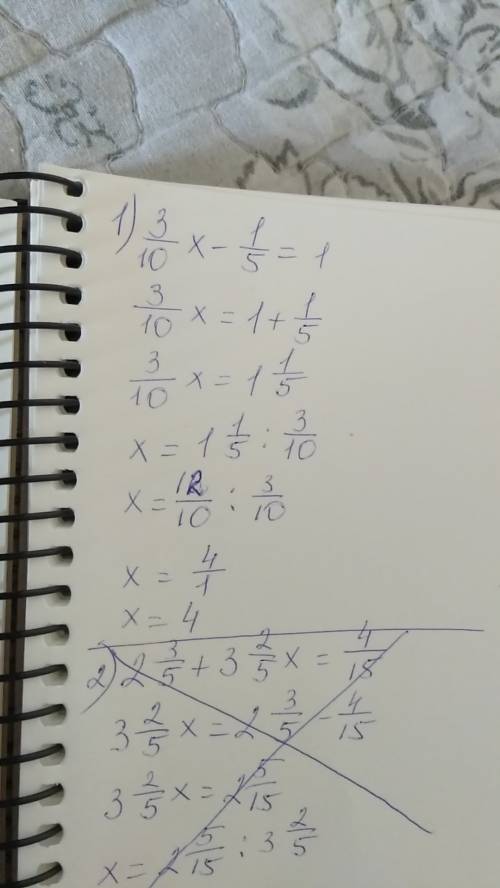 1) 3/10 x - 1/5 = 1
3/10 x = 1 + 1/5
3/10 x = 1 1/5
x = 1 1/5 : 3/10
x = 12/10 : 3/10
x = 4/1
x = 4
2) 2 3/5 + 3 2/5 x = 4/15
3 2/5 x = 2 3/5 - 4/15
3 2/5 x = 2 5/15
x = 2 5/15 : 3 2/5